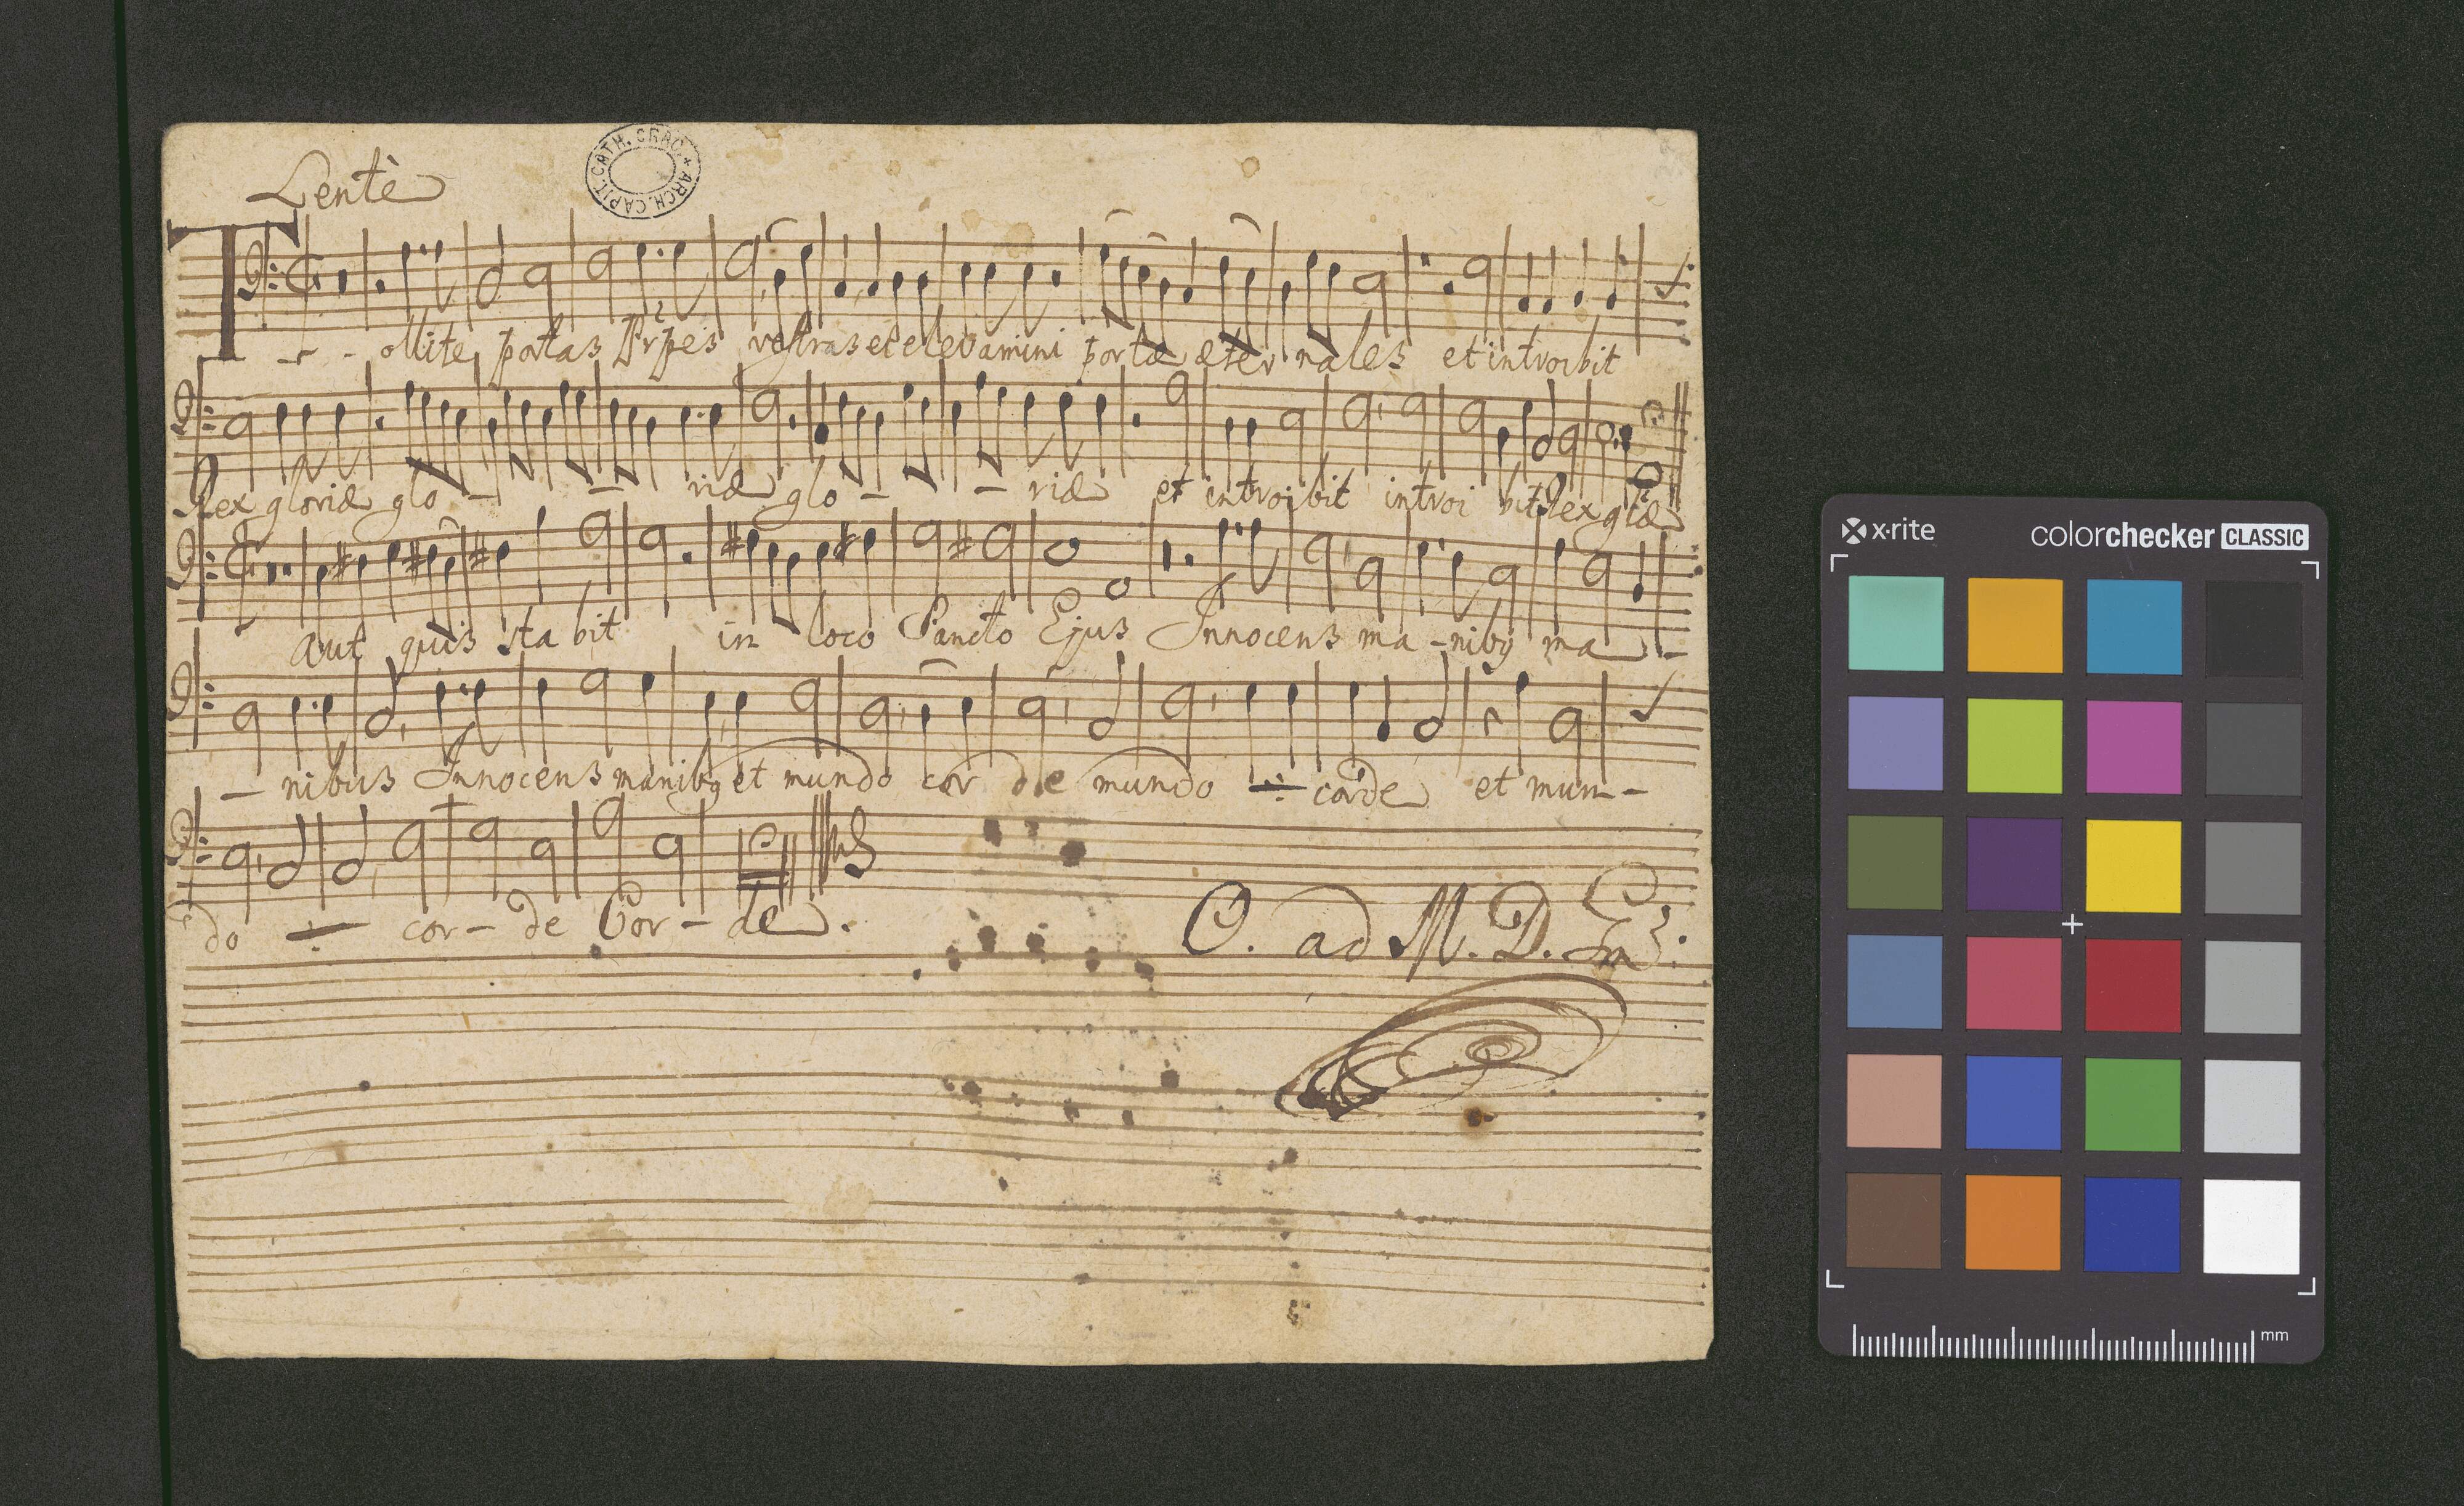 Lentè
ARCH. CAPIT. CATH. CRAC. +
T - - ollite portas Prpes vestras et elevamini portæ æter nales et introibit
Rex gloriæ glo - - riæ glo - - riæ et introibit introi bit Rex glæ
Aut quis sta bit in loco Sancto Ejus Innocens ma - nibq ma -
- nibus Innocens manibq et mundo cor de mundo corde et mun -
do cor - de Cor - de.
O. ad M. D. G.
x·rite colorchecker CLASSIC
mm